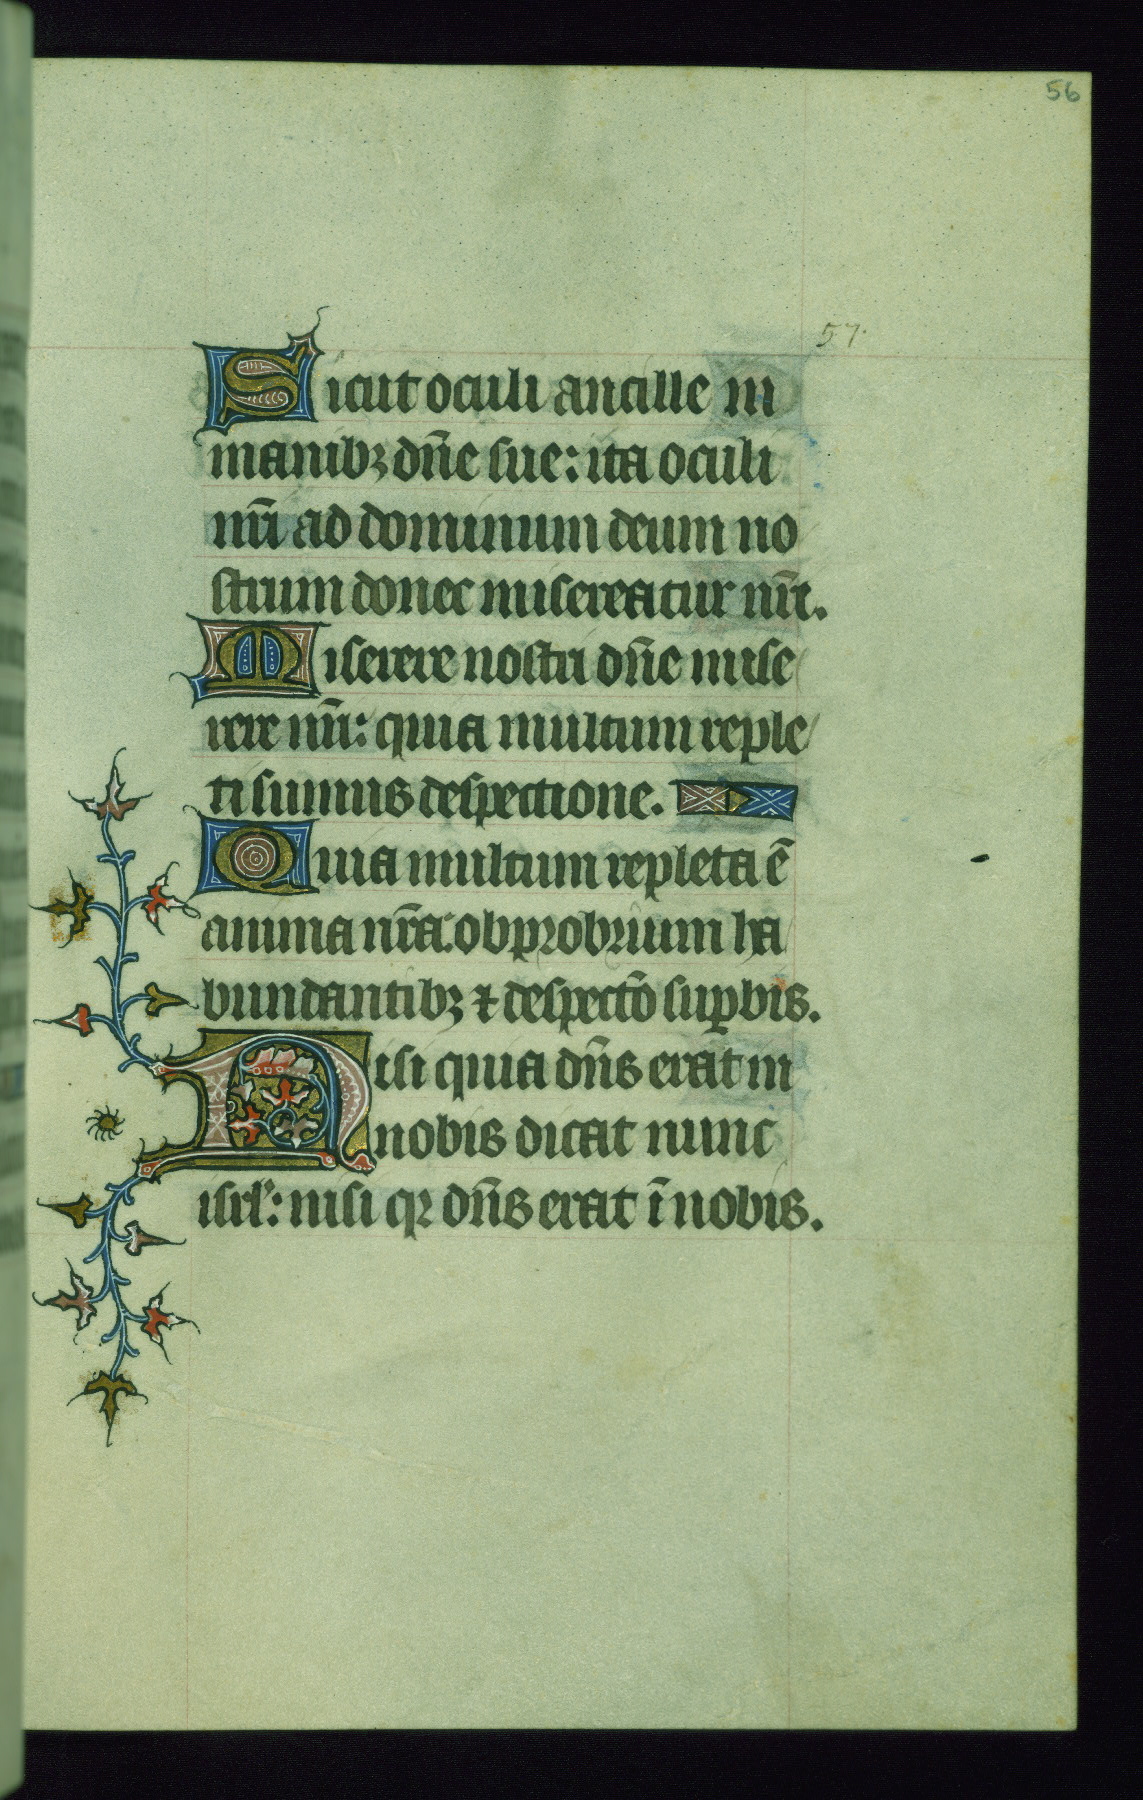 56
57.
Sicut oculi ancille in
manibꝫ dn̄e sue: ita oculi
nr̄i ad dominum deum no
strum donec misereatur nr̄i.
Miserere nostri dn̄e mise
rere nr̄i: quia multum reple
ti sumus despectione.
Quia multum repleta ē
anima nr̄a: obprobrium ha
bundantibꝫ ⁊ despectō suꝑbis.
Nisi quia dn̄s erat in
nobis dicat nunc
isrl̄: nisi qꝛ dn̄s erat ī nobis.